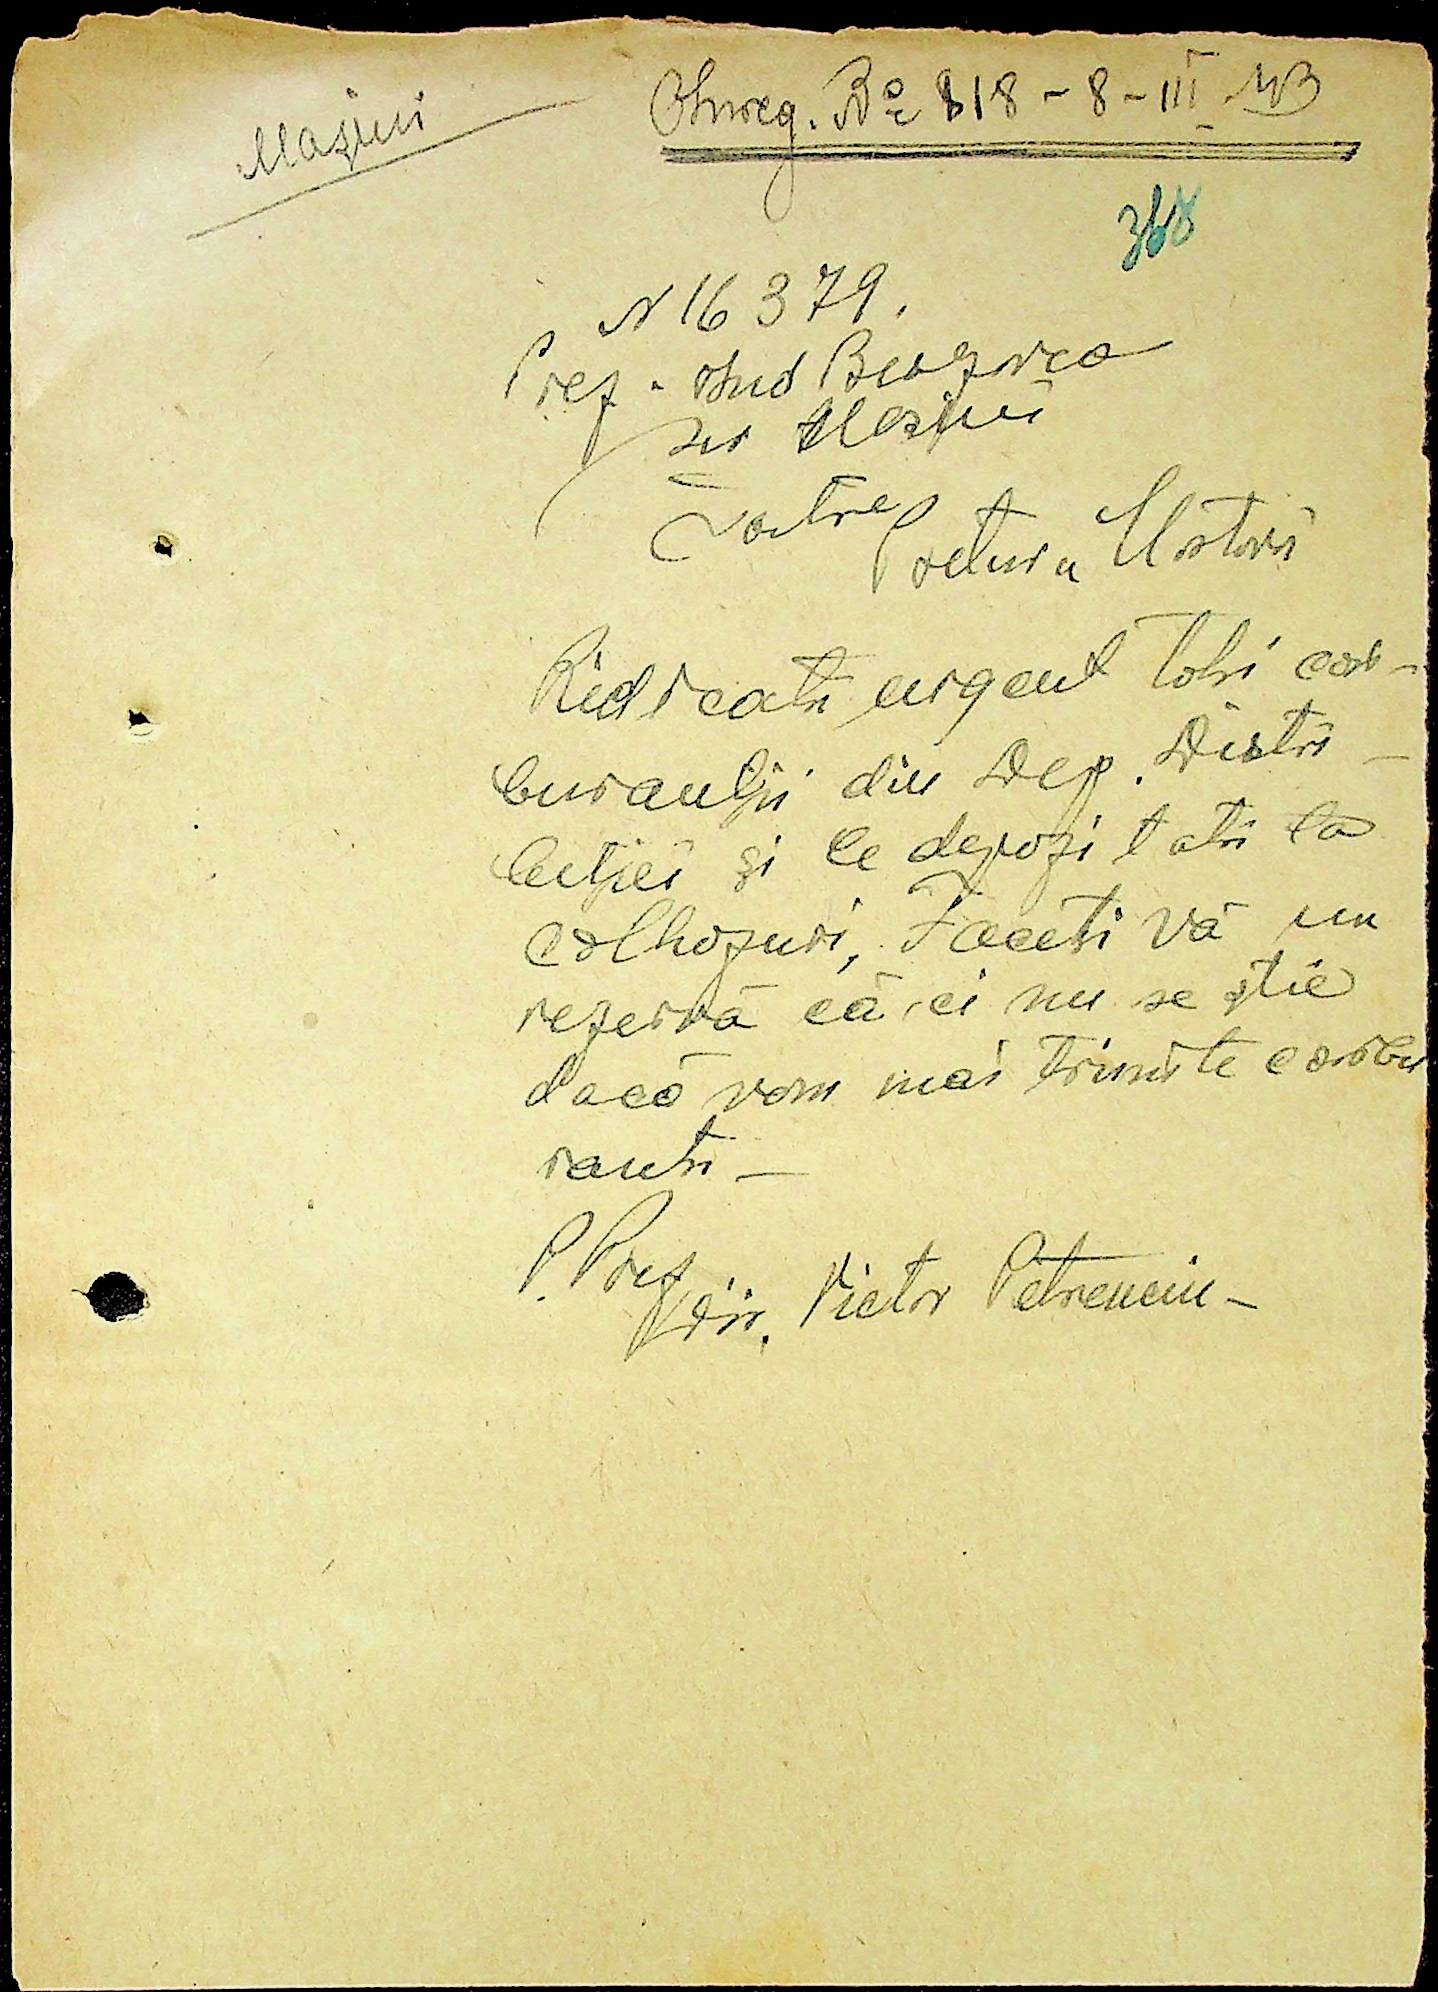 Mașini
Înreg. No 818 - 8 - III 43
368
N 16379.
Pref. Jud Berezovca
Ser Mașini
Catre
Pretura Mostovi
Ridicati urgent toti car-
buranții din Dep. Distri-
buției și le depozitati la
colhozuri, Faceti vă un
rezervă că ci nu se știe
dacă vom mai trimite carbu
ranti -
P. Pref
Dir. Victor Petrenciu -